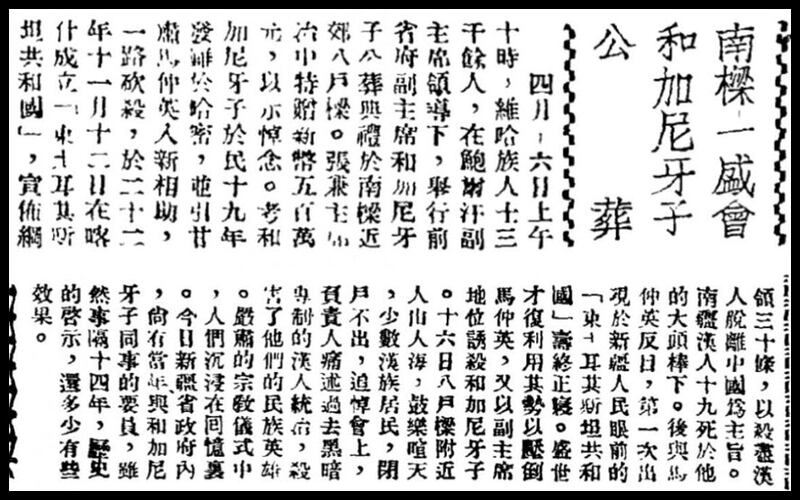 南樑一盛會
和加尼牙子
公葬
四月十六日上午
十時，維哈族人士三
千餘人，在鮑爾汗副
主席領導下，舉行前
省府副主席和加尼牙
子公葬典禮於南樑近
郊八戶樑。張兼主席
治中特贈新幣五百萬
元，以示悼念。考和
加尼牙子於民十九年
發難於哈密，並引甘
肅馬仲英入新相助，
一路砍殺，於二十二
年十一月十二日在喀
什成立「東土耳其斯
坦共和國」，宣佈綱
領三十條，以殺盡漢
人脫離中國爲主旨。
南疆漢人十九死於他
的大頭棒下。後與馬
仲英反目，第一次出
現於新疆人民眼前的
「東土耳其斯坦共和
國」壽終正寢。盛世
才復利用其勢以壓倒
馬仲英，又以副主席
地位誘殺和加尼牙子
。十六日八戶樑附近
人山人海，鼓樂喧天
，少數漢族居民，閉
戶不出，追悼會上，
負責人痛述過去黑暗
專制的漢人統治，殺
害了他們的民族英雄
。嚴肅的宗教儀式中
，人們沉浸在回憶裏
。今日新疆省政府內
，尙有當年與和加尼
牙子同事的要員，雖
然事隔十四年，歷史
的啓示，還多少有些
效果。